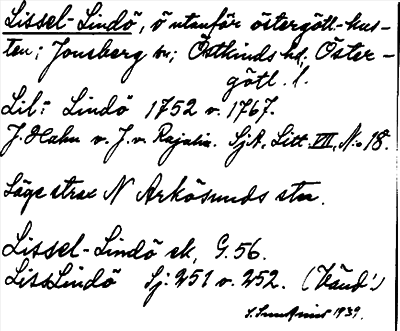 Lissel-Lindö, ö utanför östergötl.-kus-
ten; Jonsberg sn; Östkinds hd; Öster-
götl. l.
Lil: Lindö 1752 o. 1767.
J. Hahn o. J. v. Rajalin. SjA, Litt. VII, N:o 18.
Läge strax N Arkösunds stn.
Lissel-Lindö ek, G. 56.
LissLindö Sj: 251 o. 252. (Vänd!)
1939.